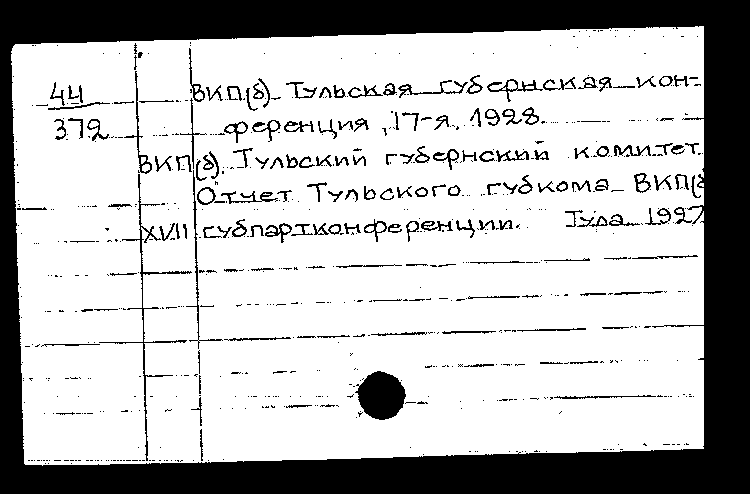 44 ВКП(б). Тульская губернская кон-
372 ференция, 17-я, 1928.
ВКП(б). Тульский губернский комитет.
Отчет Тульского губкома ВКП(б
XVII губпартконференции. Тула 1927